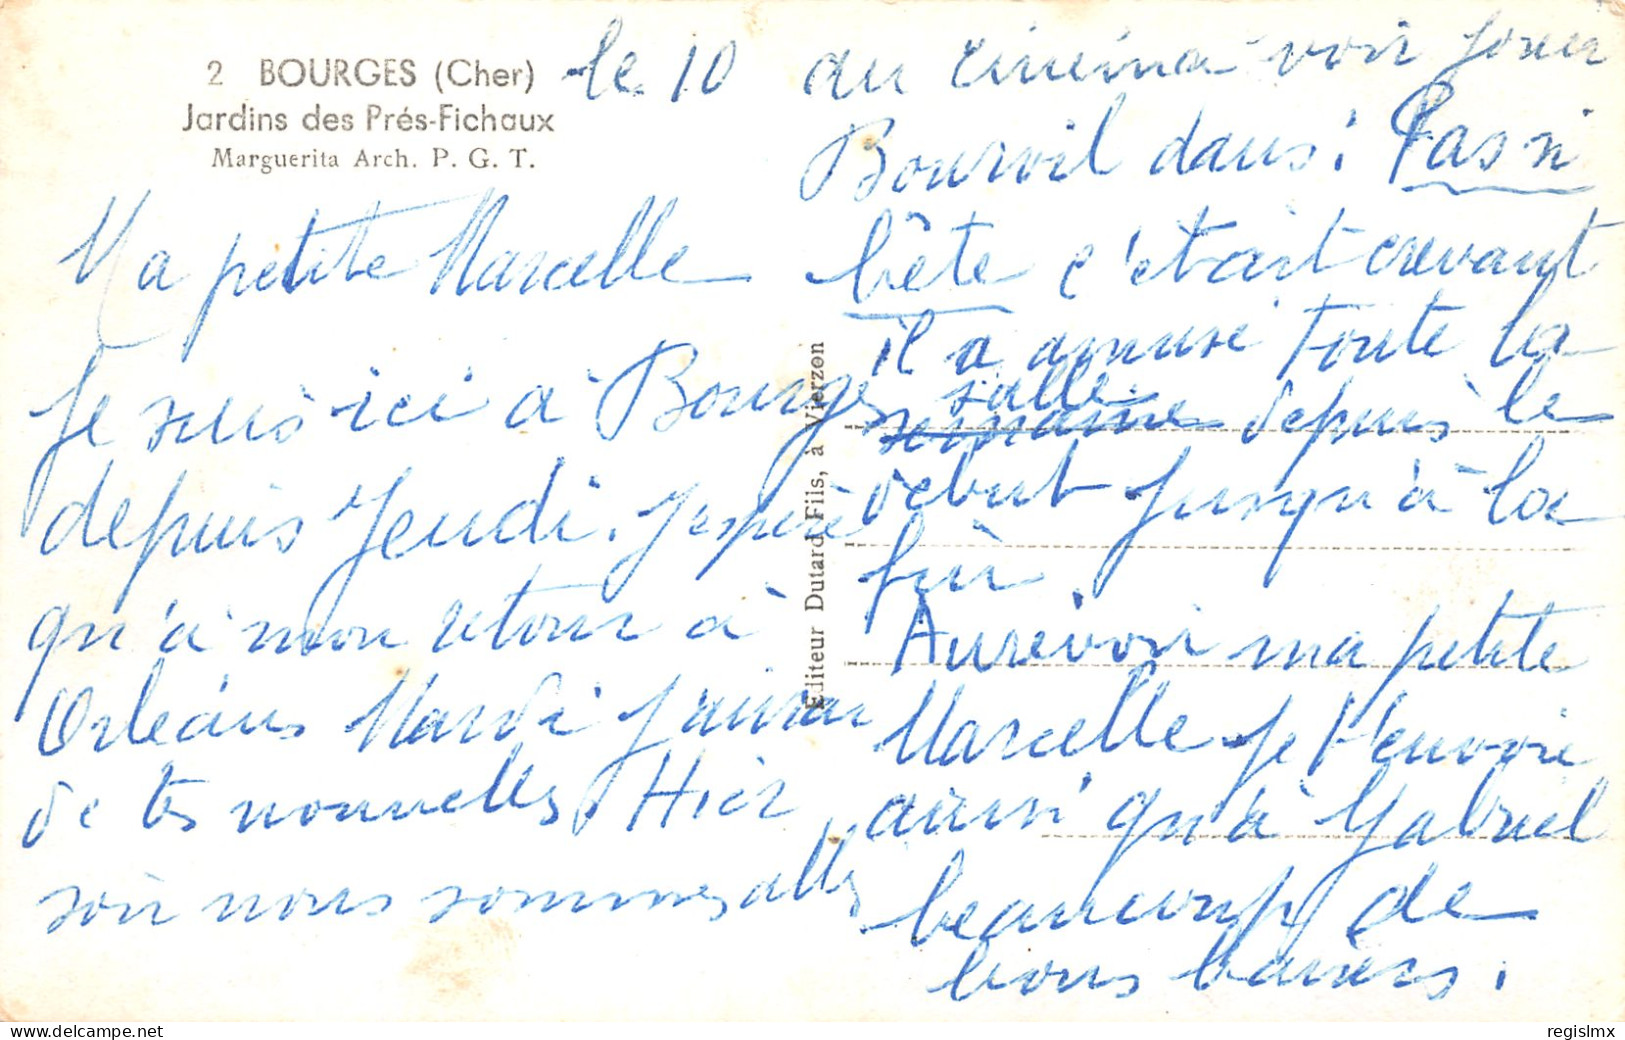 2 BOURGES (Cher)
Jardins des Prés-Fichaux
Marguerita Arch. P. G. T.
le 10
Ma petite Marcelle
Je suis ici à Bourges
depuis Jeudi. J'espère
qu'à mon retour à
Orléans Mardi j'aurai
de tes nouvelles. Hier
soir nous sommes allés
Editeur Dutard Fils, à Vierzon
au cinéma voir jouer
Bourvil dans : Pas si
bête c'était crevant
il a amusé toute la
salle
semaine depuis le
début jusqu'à la
fin.
Aurevoir ma petite
Marcelle je t'envoie
ainsi qu'à Gabriel
beaucoup de
bons baisers.
regislmx